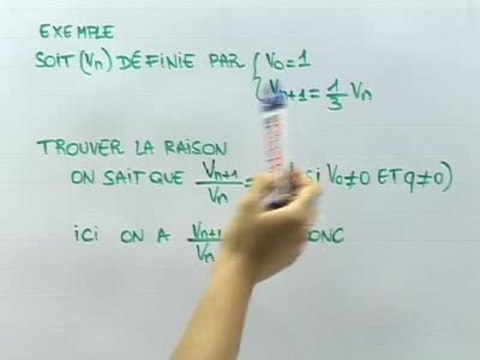 EXEMPLE
SOIT (Vn) DÉFINIE PAR { V0 = 1
Vn+1 = 1/3 Vn
TROUVER LA RAISON
ON SAIT QUE Vn+1/Vn = (si V0≠0 ET q≠0)
ICI ON A Vn+1/Vn